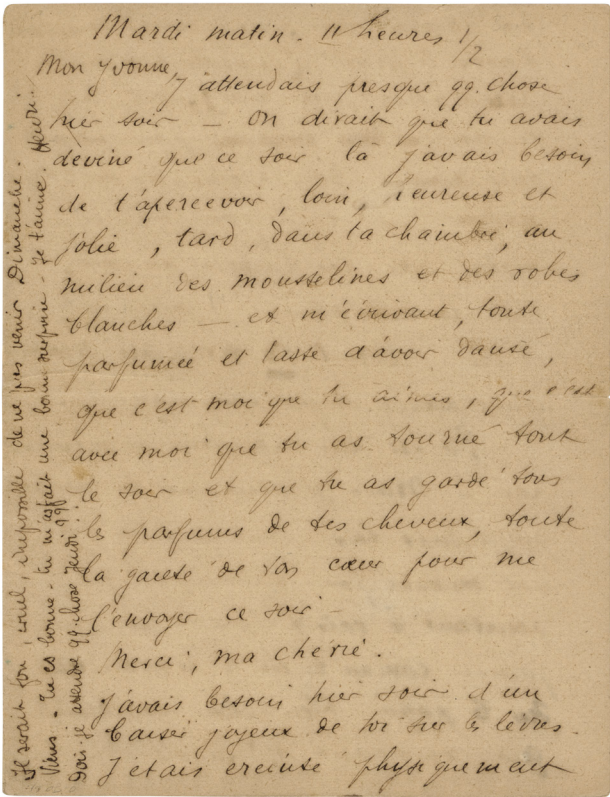 Mardi matin - 11 heures 1/2
Mon Yvonne,
J'attendais presque qq. chose
hier soir — On dirait que tu avais
deviné que ce soir là j'avais besoin
de t'apercevoir, loin, heureuse et
jolie, tard, dans ta chambre, au
milieu des mousselines et des robes
blanches — et m'écrivant, toute
parfumée et lasse d'avoir dansé,
que c'est moi que tu aimes, que c'est
avec moi que tu as tourné tout
le soir et que tu as gardé tous
les parfums de tes cheveux, toute
la gaieté de ton cœur pour me
l'envoyer ce soir -
Merci, ma chérie.
J'avais besoin hier soir d'un
baiser joyeux de toi sur les lèvres.
J'étais ereinté physiquement
Ce serait fou, cruel, impossible de ne pas venir Dimanche.
Viens - Tu es bonne - tu m'as fait une bonne surprise - Je t'aime. Henri.
Dois-je attendre qq. chose Jeudi ???